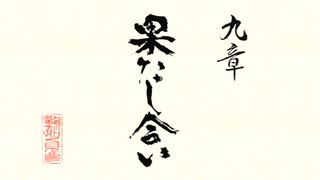 九章
果たし合い